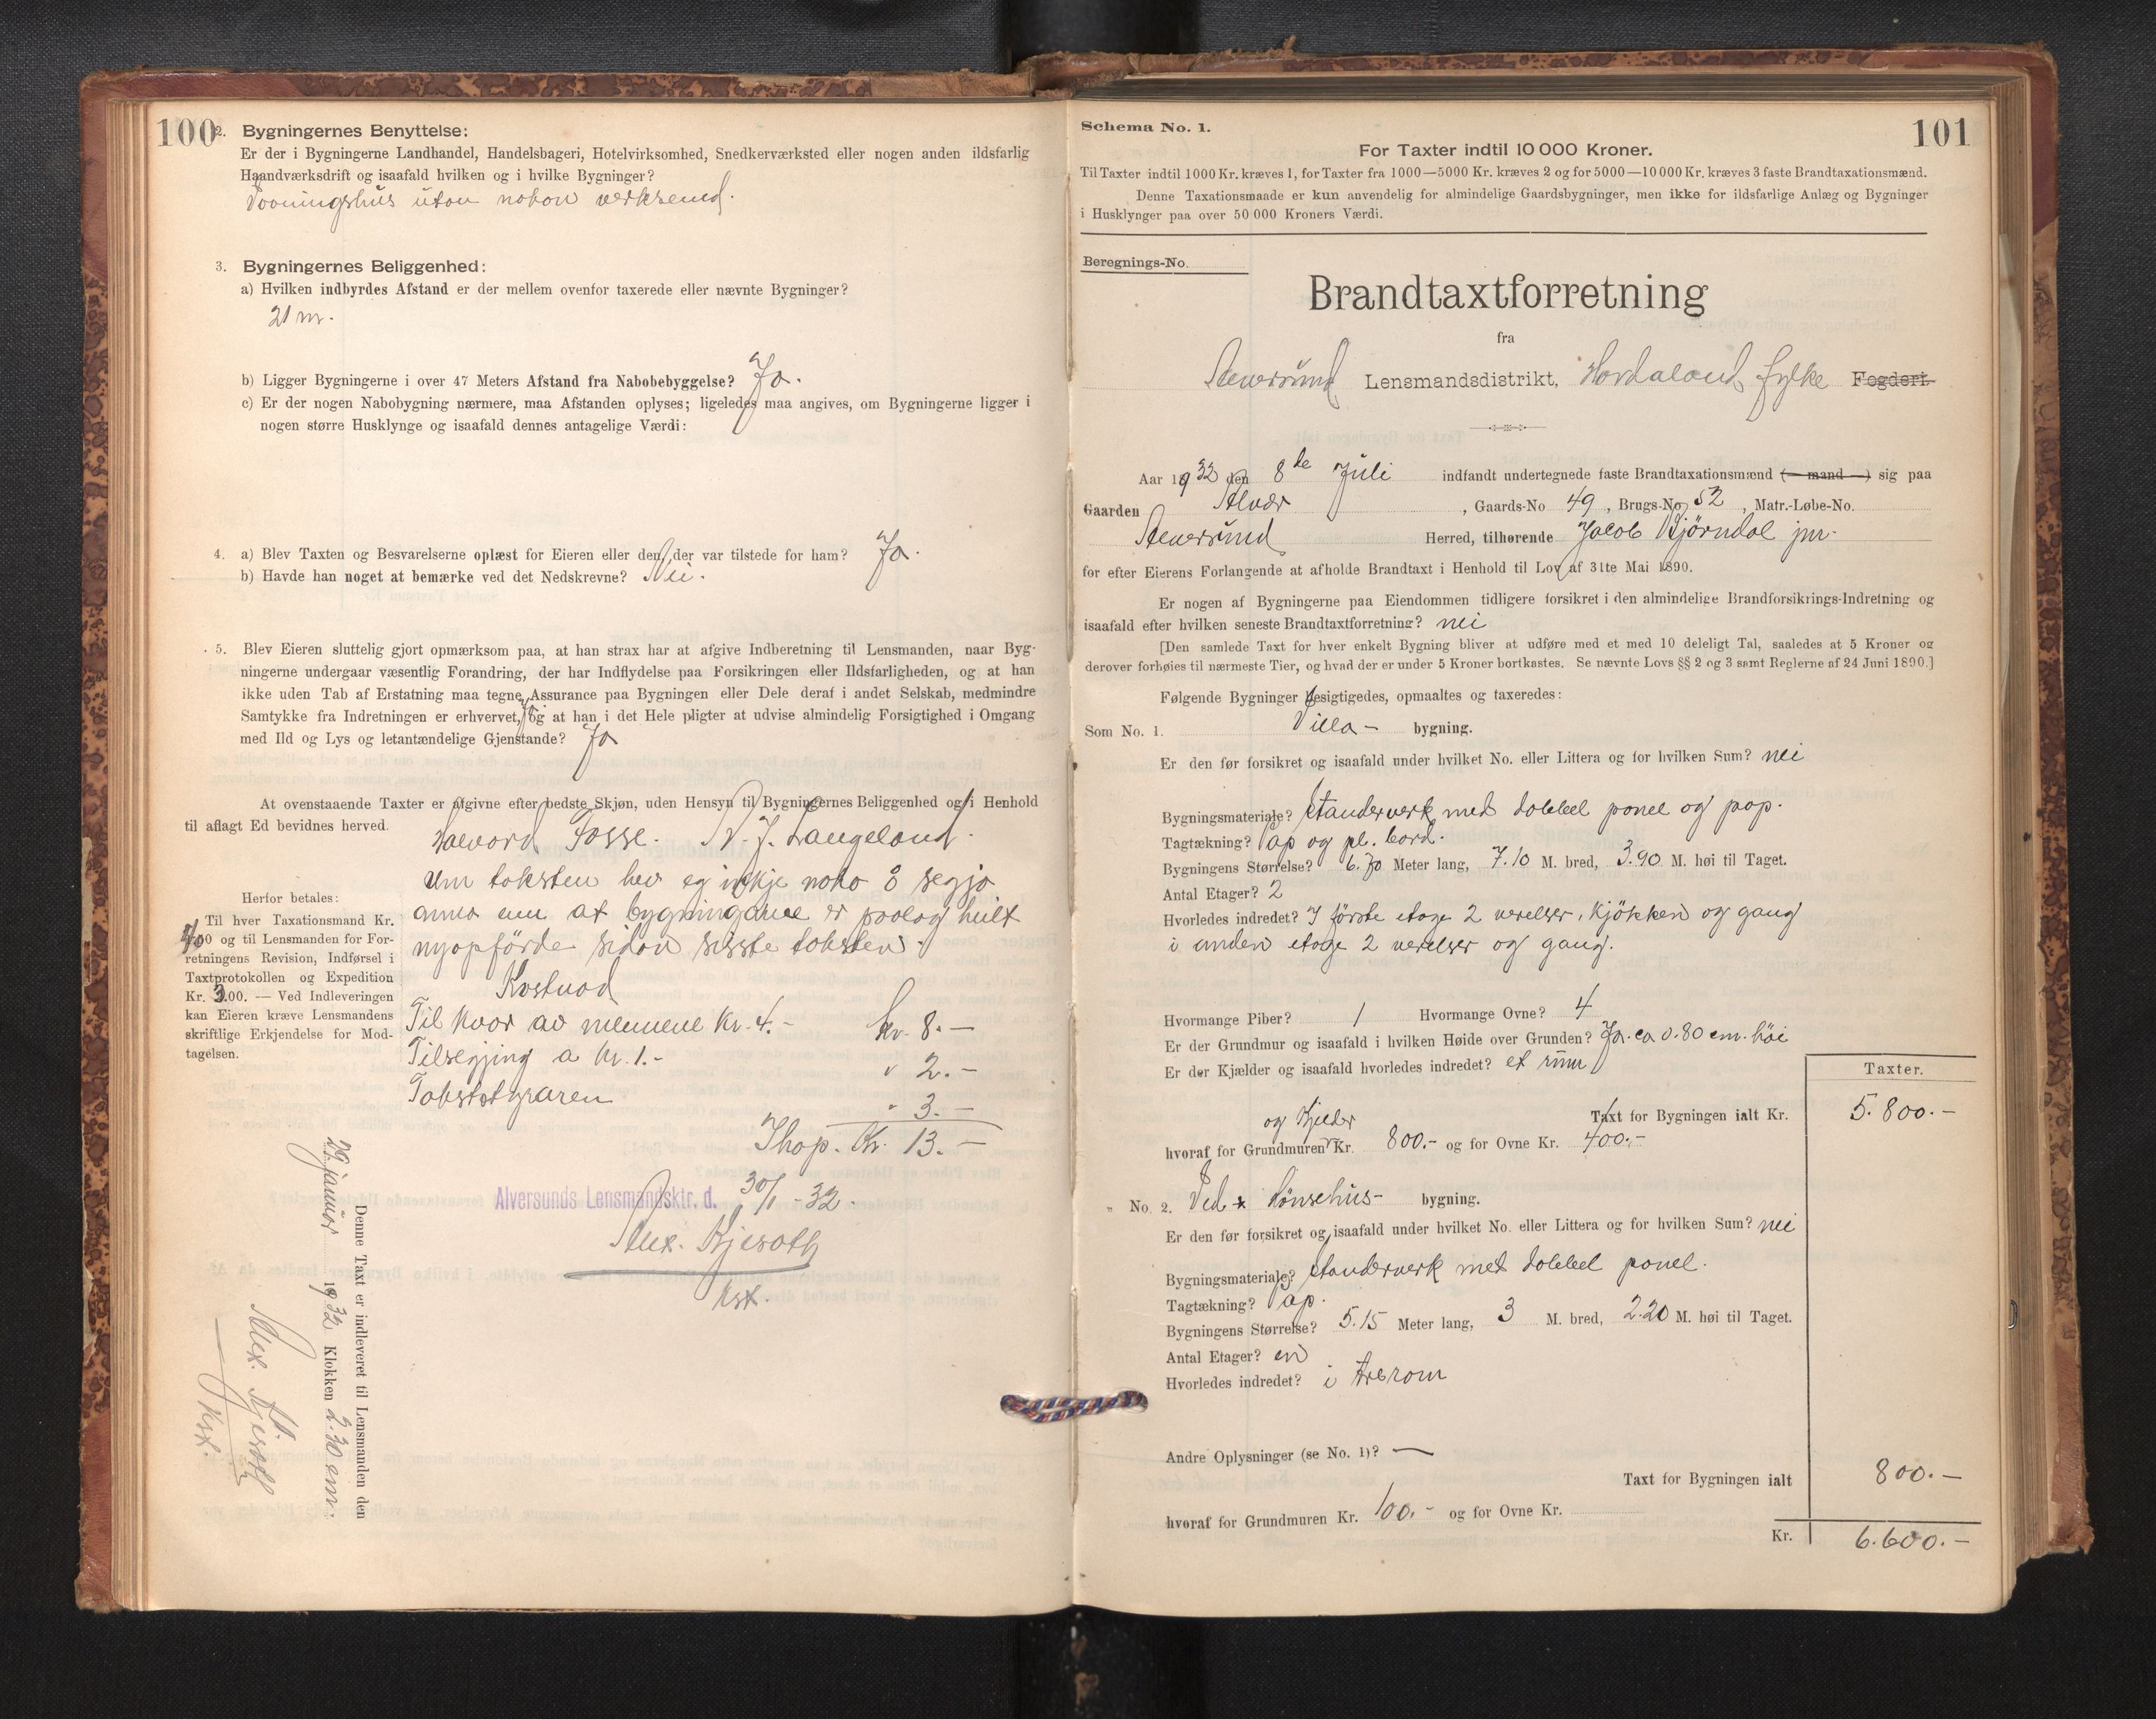 100
2. Bygningernes Benyttelse:
Er der i Bygningerne Landhandel, Handelsbageri, Hotelvirksomhed, Snedkerværksted eller nogen anden ildsfarlig
Haandværksdrift og isaafald hvilken og i hvilke Bygninger?
Vooningshus uton nokon verksemd.
3. Bygningernes Beliggenhed:
a) Hvilken indbyrdes Afstand er der mellem ovenfor taxerede eller nævnte Bygninger?
21 m.
b) Ligger Bygningerne i over 47 Meters Afstand fra Nabobebyggelse? Ja.
c) Er der nogen Nabobygning nærmere, maa Afstanden oplyses; ligeledes maa angives, om Bygningerne ligger i
nogen større Husklynge og isaafald dennes antagelige Værdi:
4. a) Blev Taxten og Besvarelserne oplæst for Eieren eller den, der var tilstede for ham? Ja.
b) Havde han noget at bemærke ved det Nedskrevne? Nei.
5. Blev Eieren sluttelig gjort opmærksom paa, at han strax har at afgive Indberetning til Lensmanden, naar Byg-
ningerne undergaar væsentlig Forandring, der har Indflydelse paa Forsikringen eller Ildsfarligheden, og at han
ikke uden Tab af Erstatning maa tegne Assurance paa Bygningen eller Dele deraf i andet Selskab, medmindre
Samtykke fra Indretningen er erhvervet, og at han i det Hele pligter at udvise almindelig Forsigtighed i Omgang
med Ild og Lys og letantændelige Gjenstande? Ja
At ovenstaaende Taxter er afgivne efter bedste Skjøn, uden Hensyn til Bygningernes Beliggenhed og i Henhold
til aflagt Ed bevidnes herved.
Halvard Fosse. N. J. Langeland.
Um taksten hev eg inkje noko å segja
anna enn at bygningane er paalag heilt
nyopförde sidan sisste taksten.
Herfor betales:
Til hver Taxationsmand Kr.
4.00 og til Lensmanden for For-
retningens Revision, Indførsel i
Taxtprotokollen og Expedition
Kr. 3.00. — Ved Indleveringen
kan Eieren kræve Lensmandens
skriftlige Erkjendelse for Mod-
tagelsen.
Kostnad
Til kvar av mennene Kr. 4.- Kr. 8.—
Tilsegjing a kr. 1.- " 2.—
Takststyraren " 3.—
Ihop. Kr. 13.—
Alversunds Lensmandsktr. d. 30/1 - 32.
Alex. Kjeroth
kst.
Denne Taxt er indleveret til Lensmanden den
29 januar 1932 Klokken 2.30 em.
Alex. Kjeroth
kst.
101
Schema No. 1.
For Taxter indtil 10 000 Kroner.
Til Taxter indtil 1000 Kr. kræves 1, for Taxter fra 1000—5000 Kr. kræves 2 og for 5000—10 000 Kr. kræves 3 faste Brandtaxationsmænd.
Denne Taxationsmaade er kun anvendelig for almindelige Gaardsbygninger, men ikke for ildsfarlige Anlæg og Bygninger
i Husklynger paa over 50 000 Kroners Værdi.
Beregnings-No.
Brandtaxtforretning
fra
Alversund Lensmandsdistrikt, Hordaland fylke Fogderi.
Aar 1932 den 8de Juli indfandt undertegnede faste Brandtaxationsmænd (— mand —) sig paa
Gaarden Alvær, Gaards-No 49, Brugs-No 52, Matr.-Løbe-No.
Alversund Herred, tilhørende Jacob Bjørndal jnr.
for efter Eierens Forlangende at afholde Brandtaxt i Henhold til Lov af 31te Mai 1890.
Er nogen af Bygningerne paa Eiendommen tidligere forsikret i den almindelige Brandforsikrings-Indretning og
isaafald efter hvilken seneste Brandtaxtforretning? nei
[Den samlede Taxt for hver enkelt Bygning bliver at udføre med et med 10 deleligt Tal, saaledes at 5 Kroner og
derover forhøies til nærmeste Tier, og hvad der er under 5 Kroner bortkastes. Se nævnte Lovs §§ 2 og 3 samt Reglerne af 24 Juni 1890.]
Følgende Bygninger besigtigedes, opmaaltes og taxeredes:
Som No. 1. Villa — bygning.
Er den før forsikret og isaafald under hvilket No. eller Littera og for hvilken Sum? nei
Bygningsmateriale? Standerverk med dobbel panel og pap.
Tagtækning? Pap og pl. bord.
Bygningens Størrelse? 6.70 Meter lang, 7.10 M. bred, 3.90 M. høi til Taget.
Antal Etager? 2
Hvorledes indredet? I förste etage 2 verelser, kjökken og gang
i anden etage 2 verelser og gang.
Hvormange Piber? 1 Hvormange Ovne? 4
Er der Grundmur og isaafald i hvilken Høide over Grunden? Ja. ca 0.80 cm. høi
Er der Kjælder og isaafald hvorledes indredet? et rum
Taxter.
Taxt for Bygningen ialt Kr. 5.800.—
og Kjelder
hvoraf for Grundmuren Kr. 800.- og for Ovne Kr. 400.-
" No. 2. Ved & Hönsehus- bygning.
Er den før forsikret og isaafald under hvilket No. eller Littera og for hvilken Sum? nei
Bygningsmateriale? Standerverk med dobbel panel.
Tagtækning? Pap.
Bygningens Størrelse? 5.15 Meter lang, 3 M. bred, 2.20 M. høi til Taget.
Antal Etager? en
Hvorledes indredet? i tverom
Andre Oplysninger (se No. 1)? —
Taxt for Bygningen ialt 800.—
hvoraf for Grundmuren Kr. 100.- og for Ovne Kr.
Kr. 6.600.—